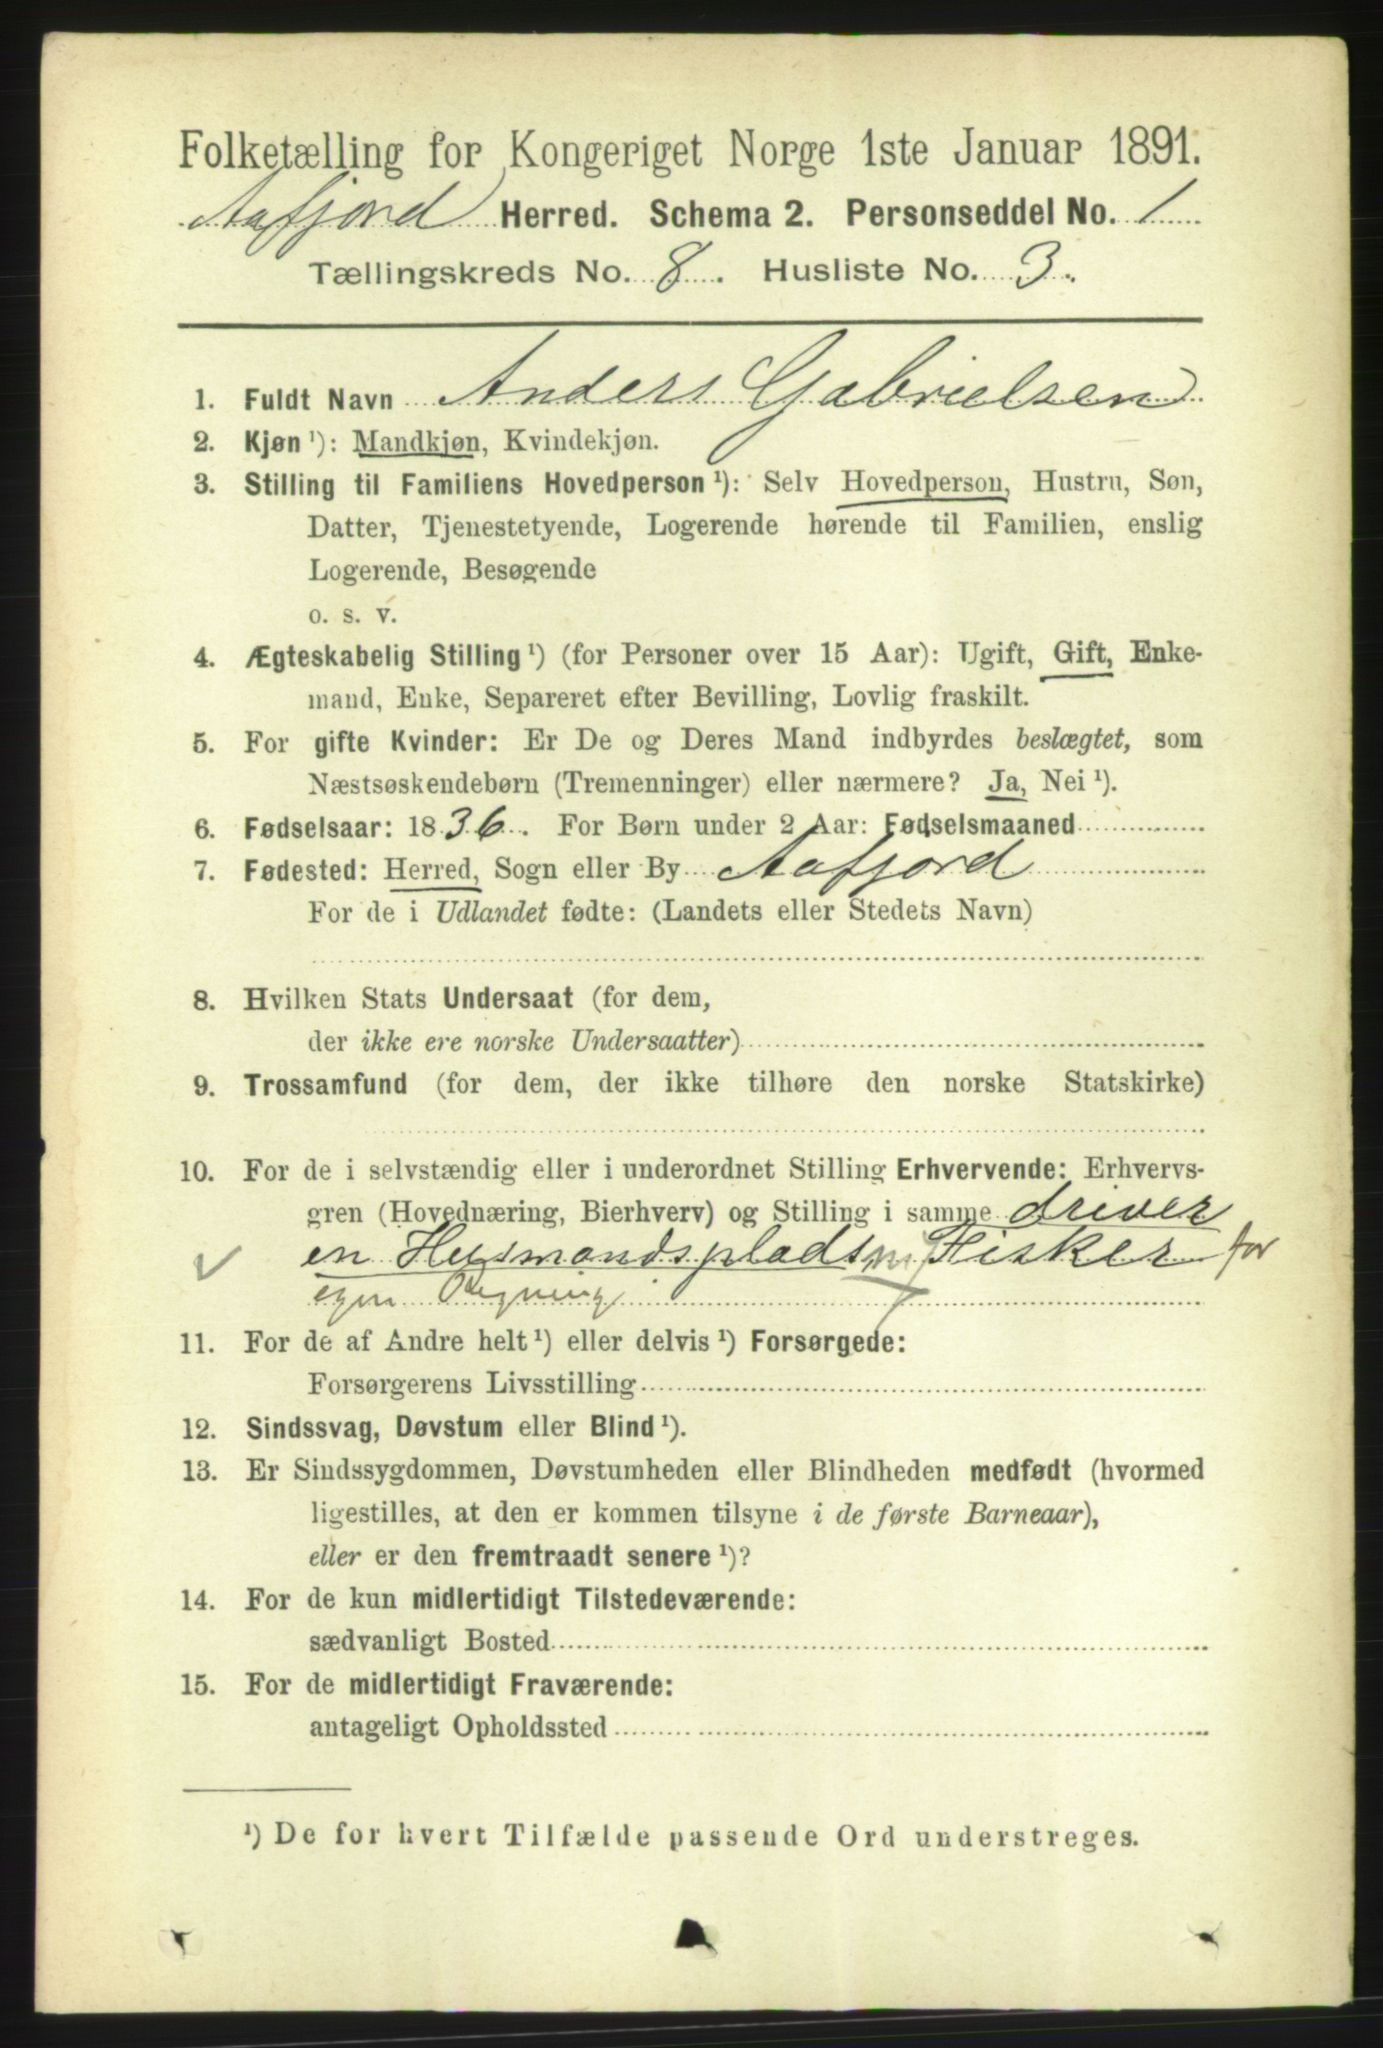 Folketælling for Kongeriget Norge 1ste Januar 1891.
Aafjord Herred. Schema 2. Personseddel No. 1
Tællingskreds No. 8. Husliste No. 3.
1. Fuldt Navn Anders Gabrielsen
2. Kjøn ¹): Mandkjøn, Kvindekjøn.
3. Stilling til Familiens Hovedperson ¹): Selv Hovedperson, Hustru, Søn,
Datter, Tjenestetyende, Logerende hørende til Familien, enslig
Logerende, Besøgende
o. s. v.
4. Ægteskabelig Stilling ¹) (for Personer over 15 Aar): Ugift, Gift, Enke-
mand, Enke, Separeret efter Bevilling, Lovlig fraskilt.
5. For gifte Kvinder: Er De og Deres Mand indbyrdes beslægtet, som
Næstsøskendebørn (Tremenninger) eller nærmere? Ja, Nei ¹).
6. Fødselsaar: 1836. For Børn under 2 Aar: Fødselsmaaned
7. Fødested: Herred, Sogn eller By Aafjord
For de i Udlandet fødte: (Landets eller Stedets Navn)
8. Hvilken Stats Undersaat (for dem,
der ikke ere norske Undersaatter)
9. Trossamfund (for dem, der ikke tilhøre den norske Statskirke)
10. For de i selvstændig eller i underordnet Stilling Erhvervende: Erhvervs-
gren (Hovednæring, Bierhverv) og Stilling i samme driver
en Husmandsplads Fisker for
egen Regning
11. For de af Andre helt ¹) eller delvis ¹) Forsørgede:
Forsørgerens Livsstilling
12. Sindssvag, Døvstum eller Blind ¹).
13. Er Sindssygdommen, Døvstumheden eller Blindheden medfødt (hvormed
ligestilles, at den er kommen tilsyne i de første Barneaar),
eller er den fremtraadt senere ¹)?
14. For de kun midlertidigt Tilstedeværende:
sædvanligt Bosted
15. For de midlertidigt Fraværende:
antageligt Opholdssted
¹) De for hvert Tilfælde passende Ord understreges.